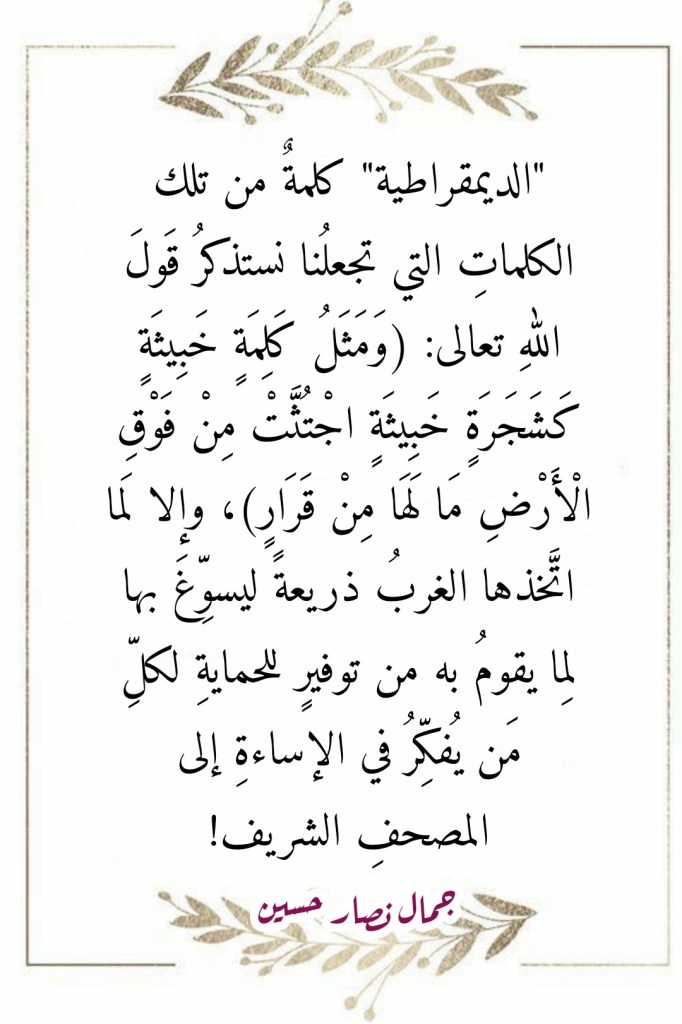 "الديمقراطية" كلمةٌ من تلك
الكلماتِ التي تجعلُنا نستذكرُ قَولَ
اللهِ تعالى: (وَمَثَلُ كَلِمَةٍ خَبِيثَةٍ
كَشَجَرَةٍ خَبِيثَةٍ اجْتُثَّتْ مِنْ فَوْقِ
الْأَرْضِ مَا لَهَا مِنْ قَرَارٍ)، وإلا لَما
اتَّخذها الغربُ ذريعةً ليسوِّغَ بها
لِما يقومُ به من توفيرٍ للحمايةِ لكلِّ
مَن يُفكِّرُ في الإساءةِ إلى
المصحفِ الشريف!
جمال نصار حسين